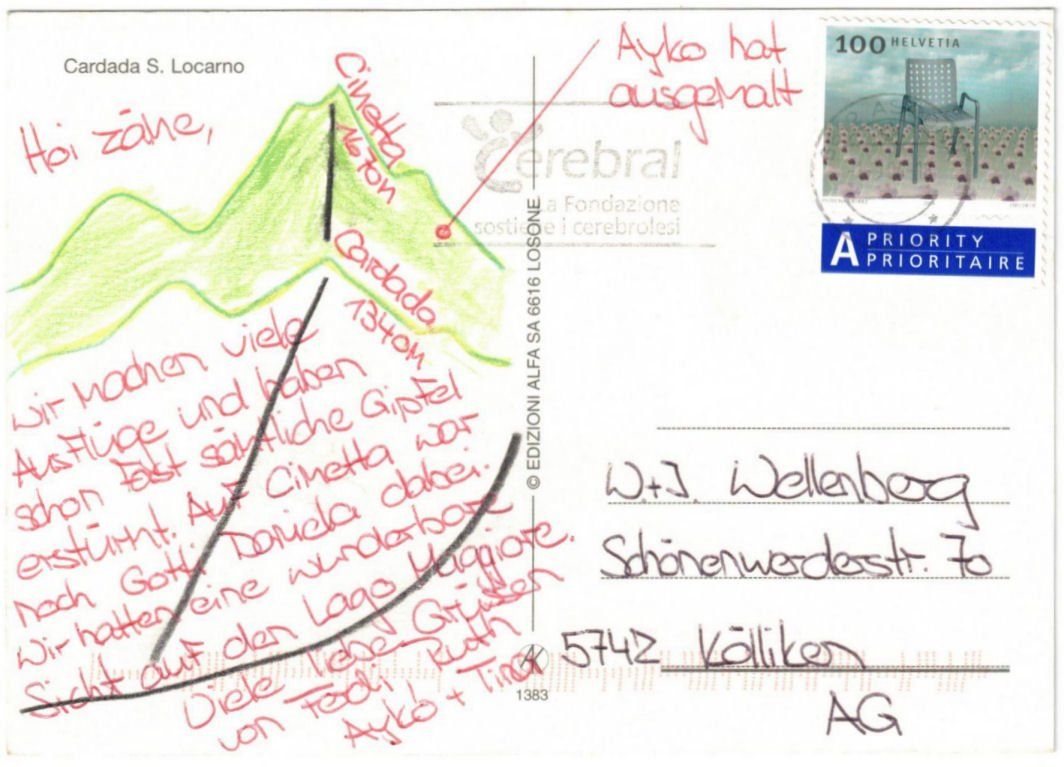 Cardada S. Locarno
Hoi zäme,
Cimetta
1670m
Cardada
1340m
Ayko hat
ausgemalt
wir machen viele
Ausflüge und haben
schon fast sämtliche Gipfel
erstürmt. Auf Cimetta war
noch Gotti Daniela dabei.
Wir hatten eine wunderbare
Sicht auf den Lago Maggiore.
Viele liebe Grüsse
von Fedi, Ruth
Ayko + Tina
© EDIZIONI ALFA SA 6616 LOSONE
1383
Cerebral
a Fondazione
sostiene i cerebrolesi
100 HELVETIA
A PRIORITY
PRIORITAIRE
W.+J. Wellenberg
Schönenwerderstr. 70
5742 Kölliken
AG